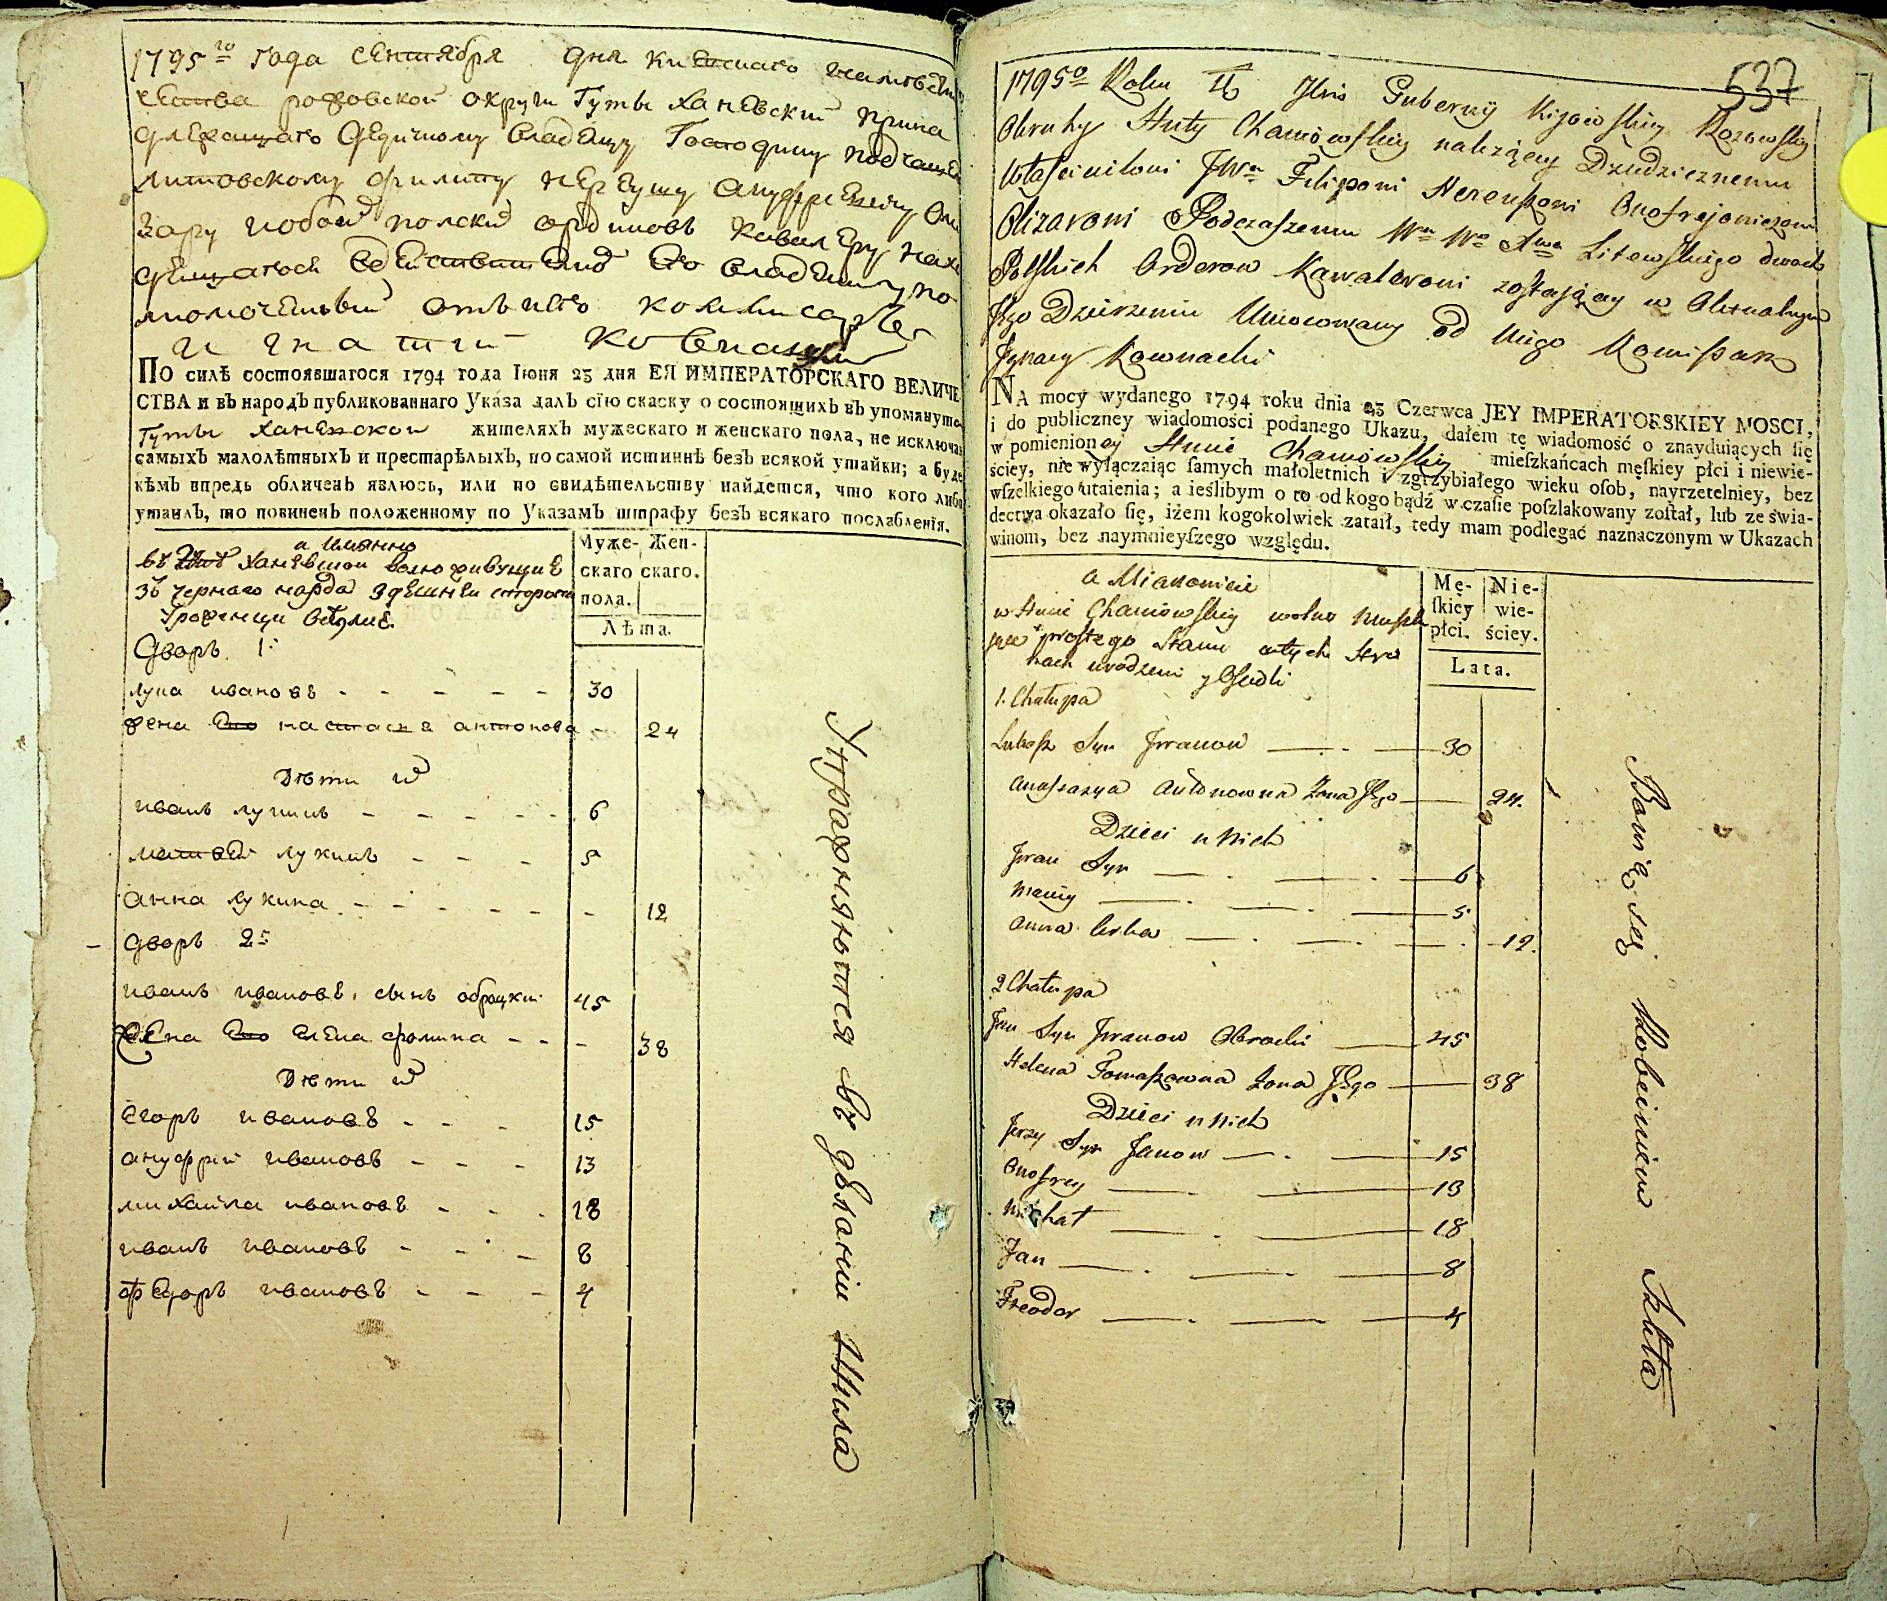 1795го года сентября дня Киевского наместни
чества роховской округи Гуты Ханевский прина
длежащаго дедичному владелцу Господину подчаше
литовскому филипу нереушу ануфриевичу Оли
зару
полских ординовъ Кавалеру
владении упо
от него комисаръ
Игнатий Ковнацки
ПО силѣ состоявшагося 1794 года Іюня 23 дня ЕЯ ИМПЕРАТОРСКАГО ВЕЛИЧЕ
СТВА и въ народъ публикованнаго Указа далъ сїю скаску о состоящихъ въ упомянуто
Гуты Ханевской жителяхъ мужескаго и женскаго пола, не исключа
самыхъ малолѣтныхъ и престарѣлыхъ, по самой истиннѣ безъ всякой утайки; а буде
кѣмъ впредь обличенъ явлюсь, или по свидѣтельству найдется, что кого либо
утаилъ, то повиненъ положенному по Указамъ штрафу безъ всякаго послабленїя.
а имянно
въ Ханевской волно живущие
зъ черного народа
Муже-скаго пола.
Жен-скаго.
Лѣта.
Дворъ 1:
лука ивановъ - - - - - 30
жена его настася антонова - 24
Дѣти их
иванъ лукинъ - - - - - 6
матвей лукинъ - - - 5
анна лукина - - - - - - 12
- дворъ 2й
иванъ ивановъ, сынъ оброцки 45
жена его елена фомина - - - 38
Дѣти их
Егоръ ивановъ - - - 15
ануфрий ивановъ - - - 13
михайла ивановъ - - - 18
иванъ ивановъ - - - 8
федоръ ивановъ - - - 4
Упражняются въ деланіи Шкла
537
1795o Roku Guberny Kijowskiey Rozowskiy
Okruhy Huty Chaniowskiey należącey Dziedzicznemu
Własicielowi JWn Filiponi Nereuszowi Onofrejowiczowi
Olizarowi Podczaszemu Wn Wo Xtwa Litewskiego dwoch
Polskich Orderow Kawalerowi zostającey w Aktualnym
Jego Dzierzeniu Umocowany od Niego Komisarz
Jgnacy Kownacki
NA mocy wydanego 1794 roku dnia 23 Czerwca JEY IMPERATORSKIEY MOSCI,
i do publiczney wiadomości podanego Ukazu, dałem tę wiadomość o znayduiących się
w pomienioney Hucie Chaniowskiey mieſzkańcach męſkiey płci i niewie-
ściey, nie wyłączaiąc ſamych małoletnich i zgrzybiałego wieku oſob, nayrzetelniey, bez
wſzelkiego utaienia; a ieślibym o to od kogo bądź w czaſie poſzlakowany zoſtał, lub ze świa-
dectwa okazało ſię, iżem kogokolwiek zataił, tedy mam podlegać naznaczonym w Ukazach
winom, bez naymnieyſzego względu.
a Mianowicie
w Hucie Chaniowskiey wolno mieszka
jące prostego Stanu
urodzeni y Osiedli
Mę-ſkiey płci.
Nie-wie-ściey.
Lata.
1. Chałupa
Lukasz Syn Jwanow — . — 30
Anastazya Antonowna Żona Jego — 24.
Dzieci u Nich
Jwan Syn — . — . — 6
Maciey — . — . — 5
Anna Corka — . — . — . 12
2 Chałupa
Jan Syn Jwanow Obrocki — 45
Helena Tomaszowna Żona Jego — 38
Dzieci u Nich
Jerzy Syn Janow — . — 15
Onofrey — . — 13
Michał — . — 18
Jan — . — . — 8
Fteodor — . — . — 4
Bawią się Robieniem Szkła